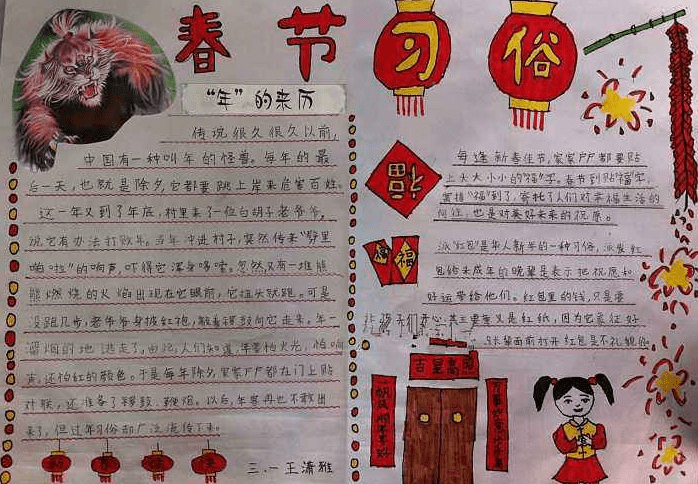 春节习俗
"年"的来历
传说很久很久以前,
中国有一种叫年的怪兽。每年的最
后一天,也就是除夕,它都要跳上岸来危害百姓。
这一年又到了年底,村里来了一位白胡子老爷爷,
说它有办法打败年。当年冲进村子,突然传来"劈里
啪啦"的响声,吓得它浑身哆嗦。忽然,又有一堆熊
熊燃烧的火焰出现在它眼前,它扭头就跑。可是
没跑几步,老爷爷身披红袍,敲着锣鼓向它走来。年一
溜烟的地逃走了。由此,人们知道,年害怕火光,怕响
声,还怕红的颜色。于是每年除夕,家家户户都在门上贴
对联,还准备了锣鼓、鞭炮。以后,年兽再也不敢出
来了,但过年习俗却广泛流传下来。
三.一 王潇雅
福
每逢新春佳节,家家户户都要贴
上大大小小的"福"字。春节到贴福字,
"福"到了,寄托了人们对幸福生活的
向往,也是对美好未来的祝愿。
福 福
派"红包"是华人新年的一种习俗,派发红
包给未成年的晚辈是表示把祝愿和
好运带给他们。红包里的钱,只是要
让孩子们开心,其主要意义是红纸,因为它象征好
长辈面前打开红包是不礼貌的
吉星高照
一帆风顺年年好
万事如意步步高